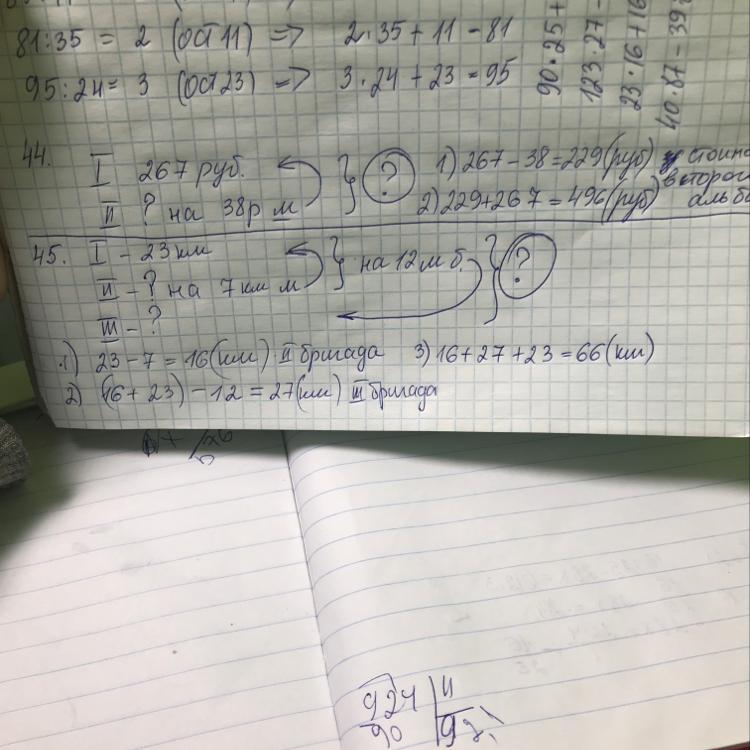 81:35 = 2 (ост 11) => 2·35 + 11 = 81
95:24 = 3 (ост 23) => 3·24 + 23 = 95
90·25+
123·27-
23·16+16
40·87-39
44.
I 267 руб.
II ? на 38р м
?
1) 267 - 38 = 229 (руб) второй
2) 229 + 267 = 496 (руб)
45. I - 23 км
II - ? на 7 км м
III - ?
на 12 м б.
?
1) 23 - 7 = 16 (км) II бригада
2) (16 + 23) - 12 = 27 (км) III бригада
3) 16 + 27 + 23 = 66 (км)
924
90